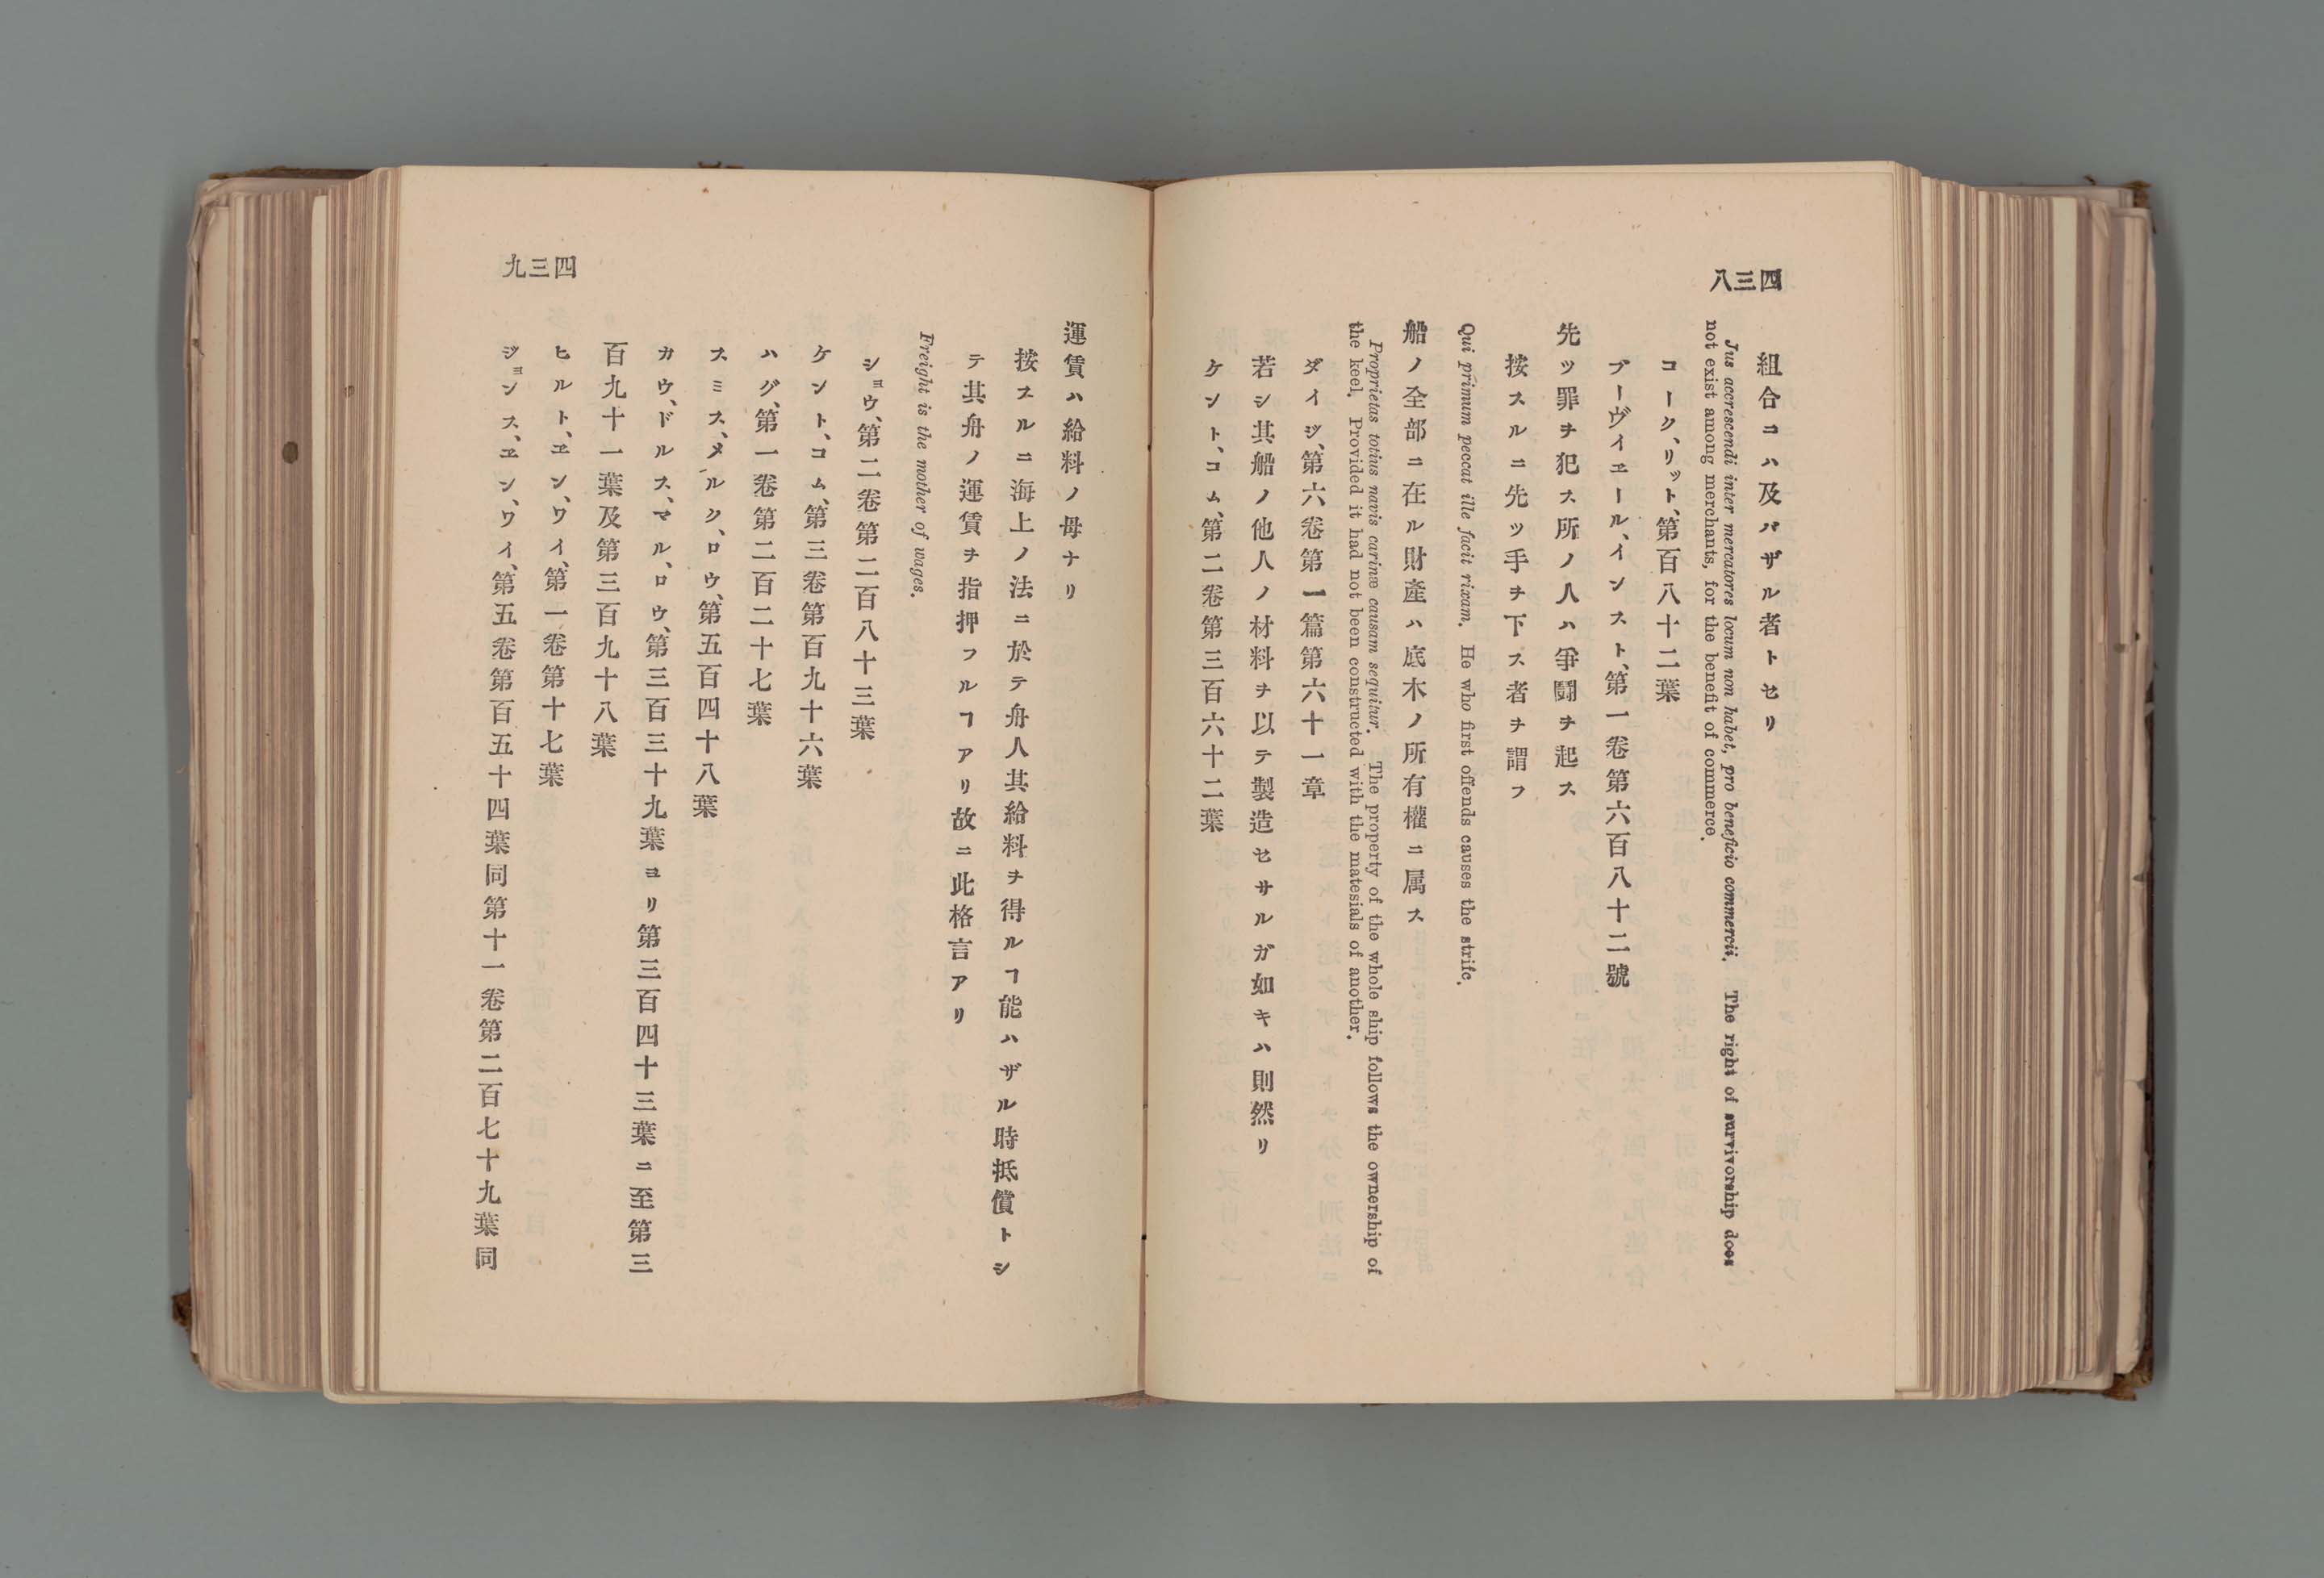 四三八
組合ニハ及バザル者トセリ
Jus accrescendi inter mercatores locum non habet, pro beneficio commercii. The right of survivorship does
not exist among merchants, for the benefit of commerce.
コーク、リット、第百八十二葉
ブーヴィヱール、インスト、第一卷第六百八十二號
先ッ罪ヲ犯ス所ノ人ハ爭鬪ヲ起ス
按スルニ先ッ手ヲ下ス者ヲ謂フ
Qui primum peccat ille facit rixam. He who first offends causes the strife.
船ノ全部ニ在ル財產ハ底木ノ所有權ニ属ス
Proprietas totius navis carinæ causam sequitur. The property of the whole ship follows the ownership of
the keel. Provided it had not been constructed with the matesials of another.
ダイジ、第六卷第一篇第六十一章
若シ其船ノ他人ノ材料ヲ以テ製造セサルガ如キハ則然リ
ケント、コム、第二卷第三百六十二葉
四三九
運賃ハ給料ノ母ナリ
按スルニ海上ノ法ニ於テ舟人其給料ヲ得ルヿ能ハザル時抵償トシ
テ其舟ノ運賃ヲ指押フルヿアリ故ニ此格言アリ
Freight is the mother of wages.
ショウ、第二卷第二百八十三葉
ケント、コム、第三卷第百九十六葉
ハグ、第一卷第二百二十七葉
スミス、メルク、ロウ、第五百四十八葉
カウ、ドルス、マル、ロウ、第三百三十九葉ヨリ第三百四十三葉ニ至第三
百九十一葉及第三百九十八葉
ヒルト、ヱン、ワイ、第一卷第十七葉
ジョンス、ヱン、ワイ、第五卷第百五十四葉同第十一卷第二百七十九葉同